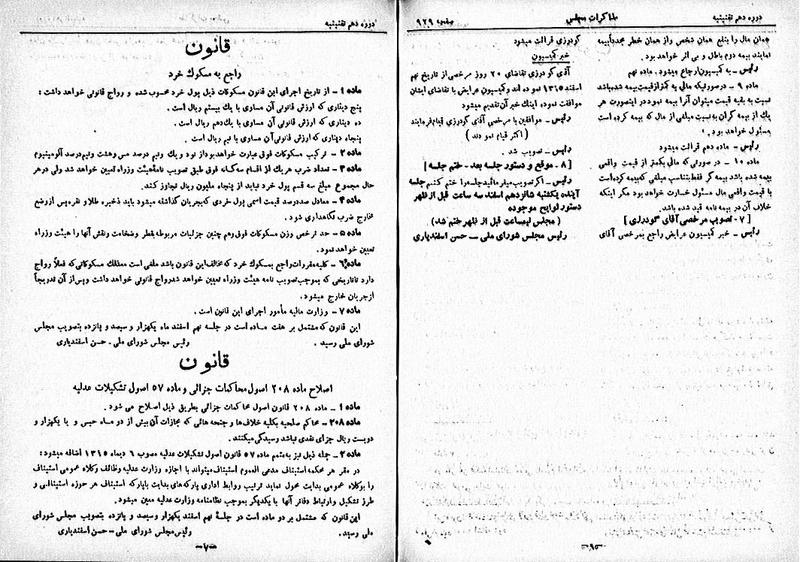 دوره دهم تقنینیه
مذاکرات مجلس
صفحه ۹۲۹
همان مال را بنفع همان شخص و از همان خطر مجدداً بیمه
نمایند بیمه دوم باطل و بی اثر خواهد بود.
رئیس ـ به کمیسیون ارجاع میشود. ماده نهم
ماده ۹ ـ در صورتیکه مالی به کمتر از قیمت بیمه شده باشد
نسبت به بقیه قیمت میتوان آنرا بیمه نمود در اینصورت هر
یک از بیمه گران به نسبت مبلغی از مال که بیمه کرده است
مسئول خواهد بود.
رئیس ـ ماده دهم قرائت میشود
ماده ۱۰ ـ در صورتی که مالی بکمتر از قیمت واقعی
بیمه شده باشد بیمه گر فقط بتناسب مبلغی که بیمه کرده است
با قیمت واقعی مال مسئول خسارت خواهد بود مگر اینکه
خلاف آن در بیمه نامه قید شده باشد.
[ ۷ ـ تصویب مرخصی آقای گودرزی ]
رئیس ـ خبر کمیسیون عرایض راجع بمرخصی آقای
گودرزی قرائت میشود
خبر کمیسیون
آقای گودرزی تقاضای ۲۰ روز مرخصی از تاریخ نهم
اسفند ۱۳۱۵ نموده اند و کمیسیون عرایض با تقاضای ایشان
موافقت نموده، اینک خبر آن تقدیم میشود
رئیس ـ موافقین با مرخصی آقای گودرزی قیام فرمایند
( اکثر قیام نمودند )
رئیس ـ تصویب شد.
[ ۸ ـ موقع و دستور جلسه بعد ـ ختم جلسه ]
رئیس ـ اگر تصویب میفرمائید جلسه را ختم کنیم جلسه
آینده یکشنبه شانزدهم اسفند سه ساعت قبل از ظهر
دستور لوایح موجوده
( مجلس نیمساعت قبل از ظهر ختم شد)
رئیس مجلس شورای ملی ـ حسن اسفندیاری
ـ۶ـ
دوره دهم تقنینیه
قانون
راجع به مسکوک خرد
ماده ۱ ـ از تاریخ اجرای این قانون مسکوکات ذیل پول خرد محسوب شده و رواج قانونی خواهد داشت :
پنج دیناری که ارزش قانونی آن مساوی با یک بیستم ریال است.
ده دیناری که ارزش قانونی آن مساوی با یک دهم ریال است.
پنجاه دیناری که ارزش قانونی آن مساوی با نیم ریال است.
ماده ۲ ـ ترکیب مسکوکات فوق عبارت خواهد بود از نود و یک ونیم درصد مس و هشت ونیم درصد آلومینیوم
ماده ۳ ـ تعداد ضرب هر یک از اقسام سه گانه فوق طبق تصویب نامه هیئت وزراء تعیین خواهد شد ولی در هر
حال مجموع مبلغ سه قسم پول خرد نباید از پنجاه ملیون ریال تجاوز کند.
ماده ۴ ـ معادل صد درصد قیمت اسمی پول خردی که بجریان گذاشته میشود باید ذخیره طلا و نقره پس از وضع
مخارج ضرب نگاهداری شود.
ماده ۵ ـ حد ترخص وزن مسکوکات فوق و هم چنین جزئیات مربوطه بقطر و ضخامت و نقش آنها را هیئت وزراء
تعیین خواهد نمود.
ماده ۶ ـ کلیه مقررات راجع به مسکوک خرد که مخالف این قانون باشد ملغی است معذلک مسکوکاتی که فعلاً رواج
دارد تا تاریخی که بموجب تصویب نامه هیئت وزراء تعیین خواهد شد رواج قانونی خواهد داشت و پس از آن تدریجاً
از جریان خارج میشود.
ماده ۷ ـ وزارت مالیه مأمور اجرای این قانون است.
این قانون که مشتمل بر هفت ماده است در جلسه نهم اسفند ماه یکهزار و سیصد و پانزده بتصویب مجلس
شورای ملی رسید.
رئیس مجلس شورای ملی ـ حسن اسفندیاری
قانون
اصلاح ماده ۲۰۸ اصول محاکمات جزائی و ماده ۵۷ اصول تشکیلات عدلیه
ماده ۱ ـ ماده ۲۰۸ قانون اصول محاکمات جزائی بطریق ذیل اصلاح می شود.
ماده ۲۰۸ ـ محاکم صلحیه بکلیه خلاف ها و جنحه هائی که مجازات آن بیش از دو ماه حبس و یا یکهزار و
دویست ریال جزای نقدی نباشد رسیدگی میکنند.
ماده ۲ ـ جمله ذیل نیز به متمم ماده ۵۷ قانون اصول تشکیلات عدلیه مصوب ۶ دیماه ۱۳۱۵ اضافه میشود :
در مقر هر محکمه استیناف مدعی العموم استیناف میتواند با اجازه وزارت عدلیه وظائف وکلاء عمومی استیناف
را بوکلای عمومی بدایت محول نماید ترتیب روابط اداری پارکه های بدایت با پارکه استیناف هر حوزه استینافی و
طرز تشکیل و ارتباط دفاتر آنها با یکدیگر بموجب نظامنامه وزارت عدلیه معین میشود.
این قانون که مشتمل بر دو ماده است در جلسه نهم اسفند یکهزار و سیصد و پانزده بتصویب مجلس شورای
ملی رسید.
رئیس مجلس شورای ملی ـ حسن اسفندیاری
ـ۷ـ